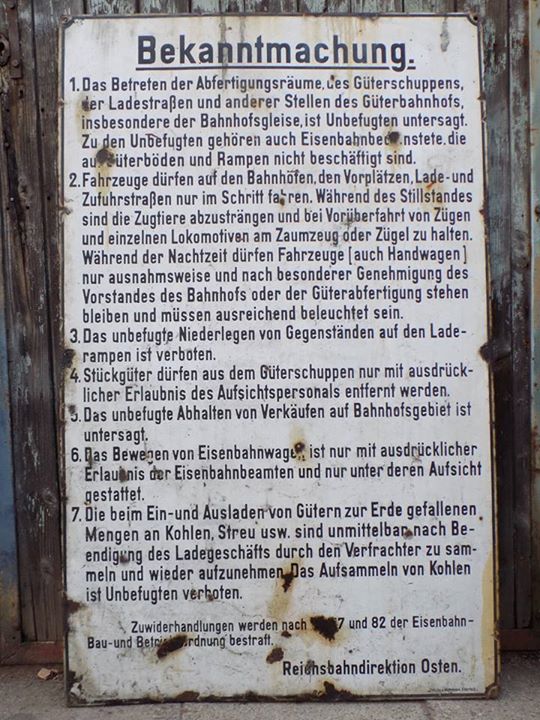 Bekanntmachung.
1. Das Betreten der Abfertigungsräume, des Güterschuppens,
der Ladestraßen und anderer Stellen des Güterbahnhofs,
insbesondere der Bahnhofsgleise, ist Unbefugten untersagt.
Zu den Unbefugten gehören auch Eisenbahnbedienstete, die
auf Güterböden und Rampen nicht beschäftigt sind.
2. Fahrzeuge dürfen auf den Bahnhöfen, den Vorplätzen, Lade- und
Zufuhrstraßen nur im Schritt fahren. Während des Stillstandes
sind die Zugtiere abzusträngen und bei Vorüberfahrt von Zügen
und einzelnen Lokomotiven am Zaumzeug oder Zügel zu halten.
Während der Nachtzeit dürfen Fahrzeuge [auch Handwagen]
nur ausnahmsweise und nach besonderer Genehmigung des
Vorstandes des Bahnhofs oder der Güterabfertigung stehen
bleiben und müssen ausreichend beleuchtet sein.
3. Das unbefugte Niederlegen von Gegenständen auf den Lade-
rampen ist verboten.
4. Stückgüter dürfen aus dem Güterschuppen nur mit ausdrück-
licher Erlaubnis des Aufsichtspersonals entfernt werden.
5. Das unbefugte Abhalten von Verkäufen auf Bahnhofsgebiet ist
untersagt.
6. Das Bewegen von Eisenbahnwagen ist nur mit ausdrücklicher
Erlaubnis der Eisenbahnbeamten und nur unter deren Aufsicht
gestattet.
7. Die beim Ein- und Ausladen von Gütern zur Erde gefallenen
Mengen an Kohlen, Streu usw. sind unmittelbar nach Be-
endigung des Ladegeschäfts durch den Verfrachter zu sam-
meln und wieder aufzunehmen. Das Aufsammeln von Kohlen
ist Unbefugten verboten.
Zuwiderhandlungen werden nach 7 und 82 der Eisenbahn-
Bau- und Betriebsordnung bestraft.
Reichsbahndirektion Osten.